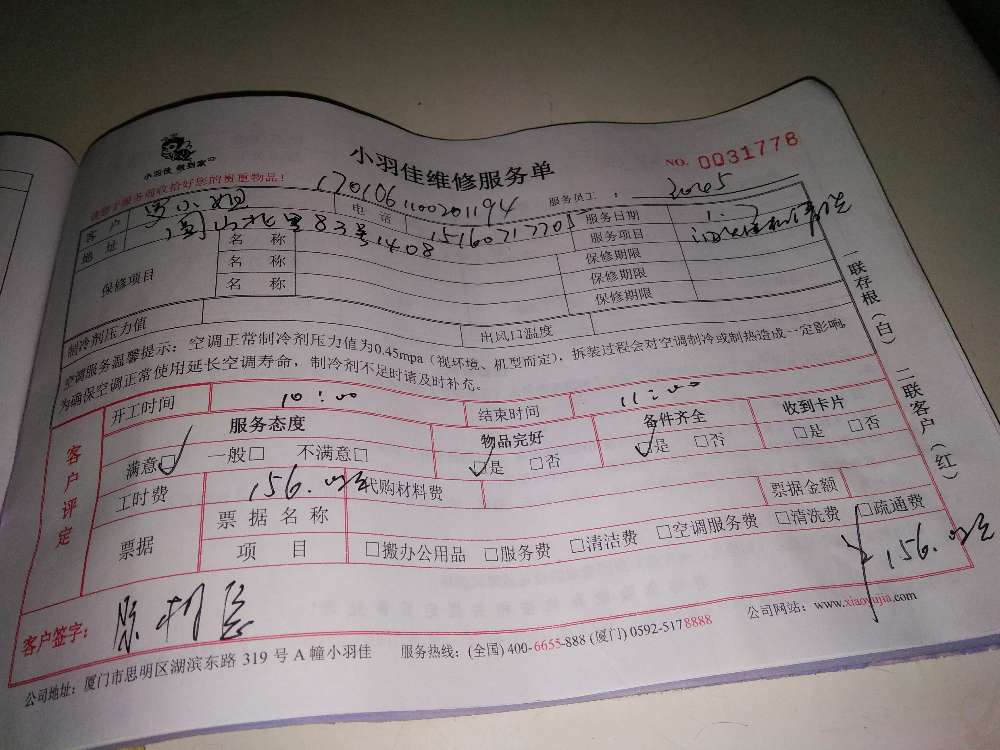 小羽佳 收到家
小羽佳维修服务单
NO. 0031778
请您于服务前收拾好您的贵重物品!
1701061100201194
服务员工
客户 小姐 电话 服务日期
地址 83号1408 服务项目
保修项目 名称 保修期限
名称 保修期限
名称 保修期限
制冷剂压力值 出风口温度
空调服务温馨提示:空调正常制冷剂压力值为0.45mpa(视环境、机型而定),拆装过程会对空调制冷或制热造成一定影响,
为确保空调正常使用延长空调寿命,制冷剂不足时请及时补充。
一联存根(白) 二联客户(红)
客户评定
开工时间 10:00 结束时间 11:00
服务态度 物品完好 备件齐全 收到卡片
满意□ 一般□ 不满意□ □是 □否 □是 □否 □是 □否
工时费 156.元 代购材料费 票据金额
票据 票据名称
项目 □搬办公用品 □服务费 □清洁费 □空调服务费 □清洗费 □疏通费
¥156.元
客户签字:
公司地址:厦门市思明区湖滨东路 319 号 A 幢小羽佳 服务热线:(全国) 400-6655-888 (厦门) 0592-5178888 公司网站:www.xiaoyujia.com